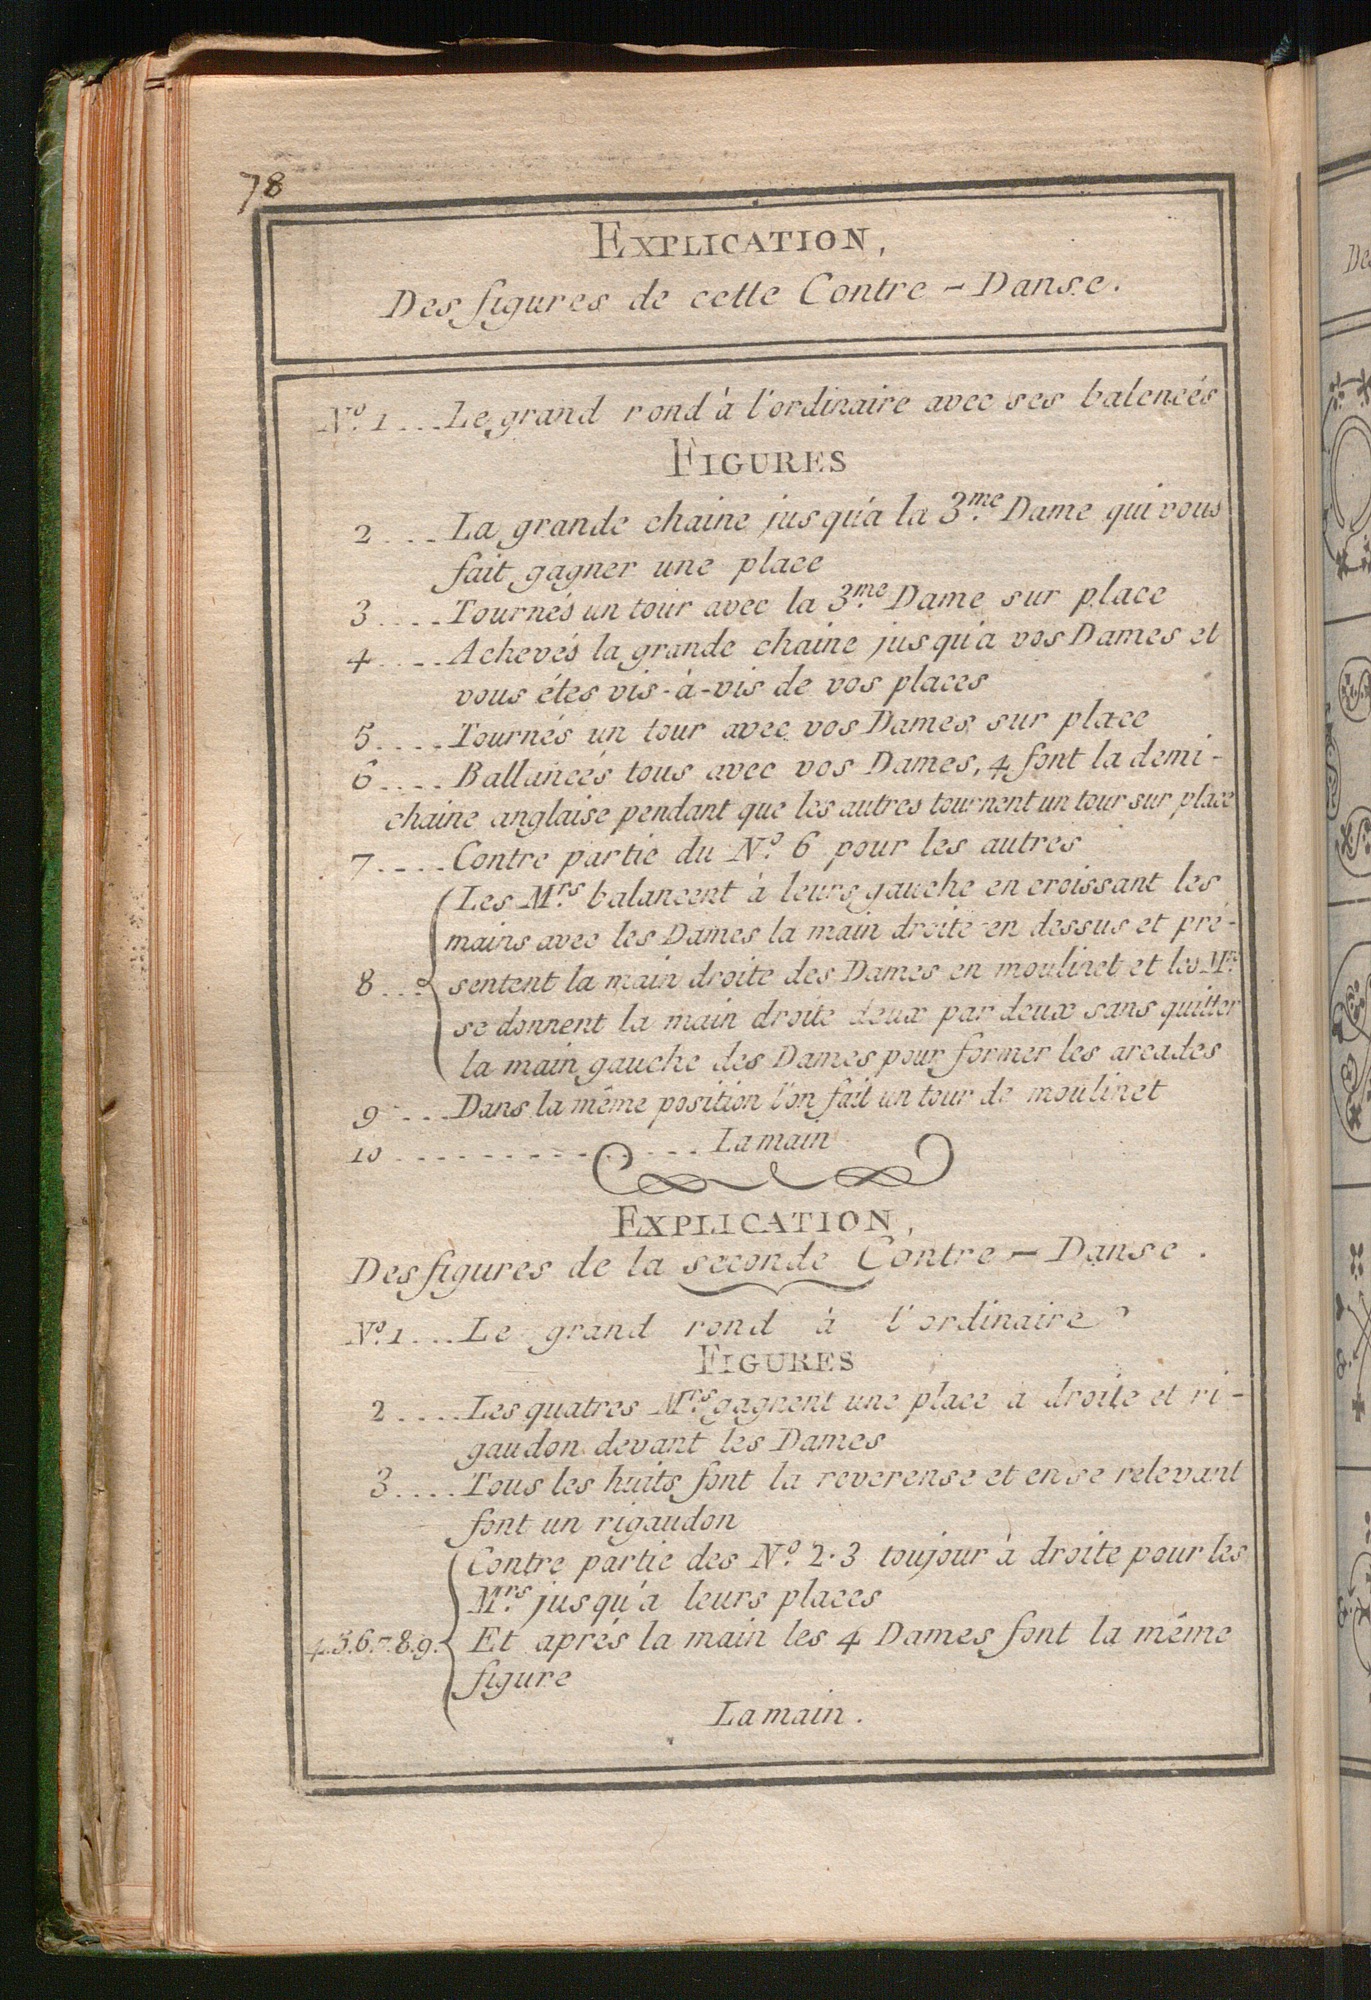 78
EXPLICATION,
Des figures de cette Contre-Danse.
N.º 1 ... Le grand rond à l'ordinaire avec ses balencés
FIGURES
2 .... La grande chaine jusqu'à la 3.me Dame qui vous
fait gagner une place
3 .... Tournés un tour avec la 3.me Dame sur place
4 .... Achevés la grande chaine jusqu'a vos Dames et
vous étes vis-à-vis de vos places
5 .... Tournés un tour avec vos Dames sur place
6 .... Ballancés tous avec vos Dames, 4 font la demi-
chaine anglaise pendant que les autres tournent un tour sur place
7 .... Contre partie du N.º 6 pour les autres
Les M.rs balancent à leurs gauche en croissant les
mains avec les Dames la main droite en dessus et pré-
8 ... sentent la main droite des Dames en moulinet et les M.rs
se donnent la main droite deux par deux sans quitter
la main gauche des Dames pour former les arcades
9 ... Dans la même position l'on fait un tour de moulinet
10 ................ La main
EXPLICATION,
Des figures de la seconde Contre-Danse.
N.º 1 ... Le grand rond à l'ordinaire
FIGURES
2 .... Les quatres M.rs gagnent une place a droite et ri-
gaudon devant les Dames
3 .... Tous les huits font la reverense et en se relevant
font un rigaudon
Contre partie des N.º 2.3 toujour à droite pour les
M.rs jusqu'à leurs places
4.5.6.7.8.9. Et aprés la main les 4 Dames font la même
figure
La main.
De